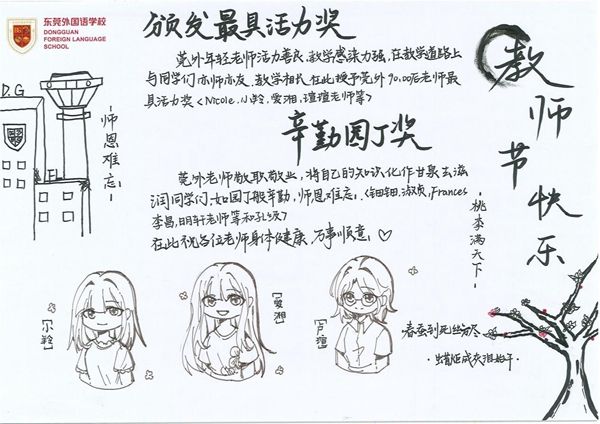 东莞外国语学校
DONGGUAN
FOREIGN LANGUAGE
SCHOOL
颁发最具活力奖
莞外年轻老师活力善良,教学感染力强,在教学道路上
与同学们亦师亦友、教学相长,在此授予莞外90.00后老师最
具活力奖<Nicole.小玲,爱湘,瑄瑄老师等>
辛勤园丁奖
莞外老师敬职敬业,将自己的知识化作甘泉去滋
润同学们.如园丁般辛勤,师恩难忘.<钿钿,淑贞,Frances
李昌,老师等和
在此祝各位老师身体健康,万事顺意.
教师节快乐
·师恩难忘·
D.G
FL
·桃李满天下·
[小玲]
[爱湘]
[卢瑄]
·春蚕到死丝方尽
·蜡炬成灰泪始干·